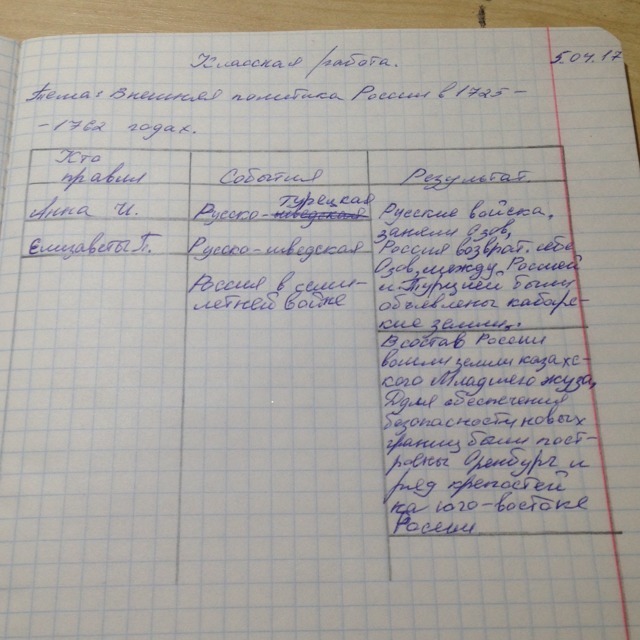 Классная работа.
5.04.17
Тема: Внешняя политика России в 1725-
-1762 годах.
Кто
правил
События
Результат.
Анна И.
Русско-турецкая
шведская
Русские войска,
заняли Азов,
Россия возврат. себе
Азов, между Россией
и Турцией были
объявлены кабарс-
кие земли.
Елизавсты П.
Русско-шведская
Россия в семи-
летней войне
В состав России
вошли земли казахс-
кого Младшего жуза,
Для обеспечения
безопасности новых
границ были пост-
ровны Оренбург и
ряд крепостей
на юго-востоке
России